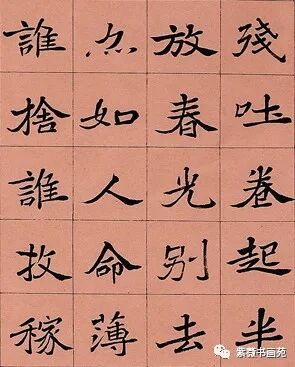 殘吐卷起半
放春光别去
点如人命薄
誰捨誰稼
紫薇书画苑